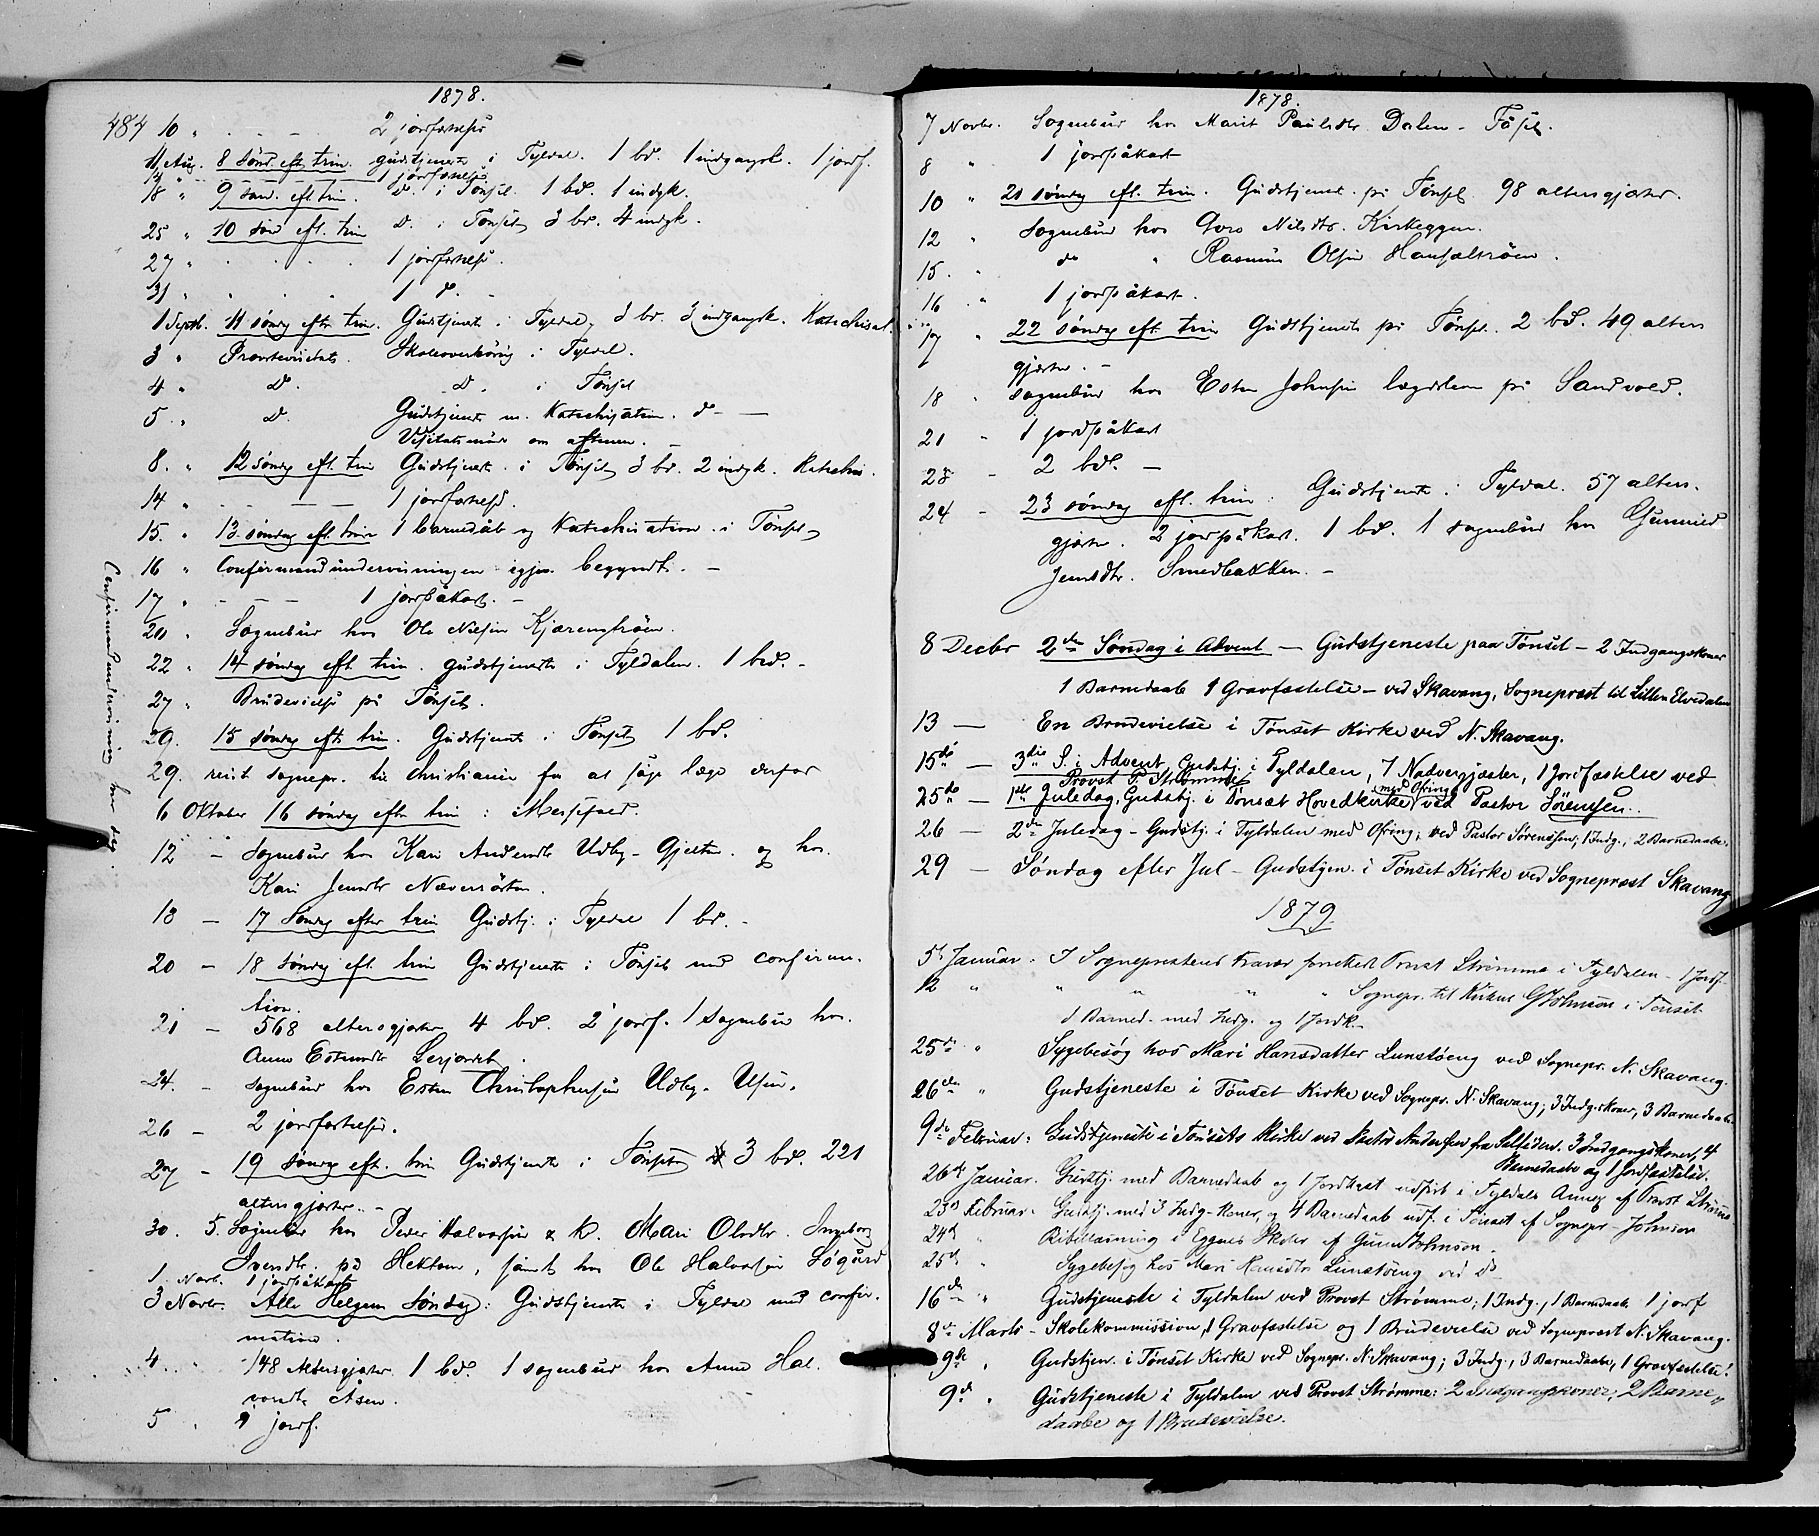 484
1878.
10 " - - - 2 jordfæstelser
11 Aug. 8 sønd. eft. trin. gudstjeneste i Tyldal. 1 bd. 1 indgangsk. 1 jordf.
14 " 1 jordfæstelse
18 " 9 sønd. eft. trin. d. i Tønset. 1 bd. 1 indgk.
25 " 10 sønd eft. trin d. i Tønset 3 bd. 4 indgk.
27 " . . . 1 jordfæstelse.
31 " " . . 1 d. -
1 Septb. 11 søndg efter trin. Gudstjeneste i Tyldal, 3 bd. 3 indgangsk. Katechisat.
3 " Provstevisitats. Skoleoverhøring i Tyldal.
4 " d. d. i Tønset
5 " d. Gudstjeneste m. Katechisation. d - —
Visitatsmøde om aftenen.
8. " 12 søndg eft. trin Gudstjeneste i Tønset 3 bd. 2 indgk. Katechi.
14 " - — — 1 jordfæstelse.
15. " 13. søndag eft. trin 1 barnedåb og Katechisation i Tønset
16 " Confirmandundervisningen igjen begyndt. -
17 " - — — 1 jordpåkast. -
20 " Sognebud hos Ole Nilsen Kjærengtrøen.
22 " 14 søndg eft. trin. gudstjeneste i Tyldalen. 1 bd. -
27 " Brudevielse på Tønset.
29. 15 søndg eft. trin. Gudstjeneste i Tønset 1 bd.
29. reist sognepr. til Christiania for at søge læge derfor
6 Oktober 16 søndag efter trin : Messefald.
12 - Sognebud hos Kari Andersdtr Udby-Gjelten. og hos
Kari Jensdtr
13 - 17 Søndg efter trin Gudstj. i Tyldal 1 bd. -
20 - 18 søndg eft. trin Gudstjeneste i Tønset med confirma-
tion.
21 - 568 altersgjæster 4 bd. 2 jordf. 1 Sognebud hos
Anne Estensdtr
24. - sognebud hos Esten Christophersen Udby-Usen.
26 - 2 jordfæstelser.
27 - 19 søndg eft. trin Gudstjeneste i Tønset 3 bd. 221
altersgjæster. -
30. 5. Sognebud hos Peder Halvorsen & k. Mari Olsdtr. Ingeborg
Svendtr. på Hektoen, samt hos Ole Halvorsen
1 Novb. 1 jordpåkast
3 Novbr. Alle Helgens Søndag: Gudstjeneste i Tyldal med confir-
mation.
4 " 148 Altersgjæster 1 bd. 1 sognebud hos Anne Hal-
vorsdtr Åsen.
5 " jordf.
Confirmandundervisning hver dag.
1878.
7 Novbr. Sognebud hos Marit Paulsdtr. Dalen - Fåset.
8 " 1 jordpåkast
10 " 21 søndg eft. trin. Gudstjenest. på Tønset 98 altersgjæster.
12 " Sognebud hos Goro Nilsdtr. Kirkeggen.
15. " do " Rasmus Olsen
16 " 1 jordpåkast.
17 " 22 søndag eft. trin Gudstjeneste på Tønset. 2 bd. 49 alters
gjæster. -
18 " sognebud hos Esten Johnsen lægdslem på Sandvold.
21 - 1 jordpåkast
23 - 2 bd. -
24 - 23 søndag eft. trin: Gudstjeneste i Tyldal. 57 alters-
gjæster. 2 jordpåkast. 1 bd. 1 sognebud hos Gunnild
Jensdtr. Smedbakken. -
8 Decbr 2den Søndag i Advent — Gudstjeneste paa Tønset - 2 Indgangskoner
1 Barnedaab 1 Gravfæstelse - ved Skavang, Sogneprest til Lilleelvedalen
13 — En Brudevielse i Tønset Kirke ved N. Skavang.
15de — 3die S. i Advent, Gudstj. i Tyldalen, 7 Nadvergjæster, 1 Jordfæstelse ved
Provst P. Strømme
25de — 1ste Juledag, Gudstj. i Tønset Hovedkirke med Ofring ved Pastor Sørensen.
26 — 2den Juledag - Gudstj. i Tyldalen med Ofring; ved Pastor Sørenssen; 1 Indg., 2 Barnedaabe.
29 — Søndag efter Jul - Gudstjen. i Tønset Kirke ved Sogneprest Skavang
1879
5te Januar. I Sogneprestens Fravær forrettet Provst Strømme i Tyldalen - 1 Jordf.
12 " " " " " Sognepr. til Johnson i Tønset
1 Barned. med Indg. og 1 Jordk.
25de " Sygebesøg hos Mari Hansdatter Lunstøeng ved Sognepr. N. Skavang.
26de " Gudstjeneste i Tønset Kirke ved Sognepr. N. Skavang; 3 Indg.koner, 3 Barnedaabe
9de Februar: Gudstjeneste i Tønsets Kirke ved Pastor Andersen fra 3 Indgangskoner, 4
Barnedaabe og 1 Jordfæstelse.
26de Januar. Gudstj. med Barnedaab og 1 Jordkast udført i Tyldals Annex af Provst Strømme
23de Februar: Gudstj. med 3 Indg-koner, og 4 Barnedaab udf. i Tønset af Sognepr. Johnson
24de " Bibellæsning i Eggens Skoler af Johnson.
25de " Sygebesøg hos Mari Hansdtr Lunstøeng ved do
16de " Gudstjeneste i Tyldalen ved Provst Strømme; 1 Indg., 1 Barnedaab 1 jordf
8de Marts - Skolekommission, 1 Gravfæstelse og 1 Brudevielse ved Sogneprest N. Skavang.
9de " Gudstjen. i Tønset Kirke ved Sognepr. N. Skavang; 3 Indg., 3 Barnedaabe, 1 Gravfæstelse!
9de " Gudstjeneste i Tyldalen ved Provst Strømme: 2 Indgangskoner; 2 Barne-
daabe og 1 Brudevielse.